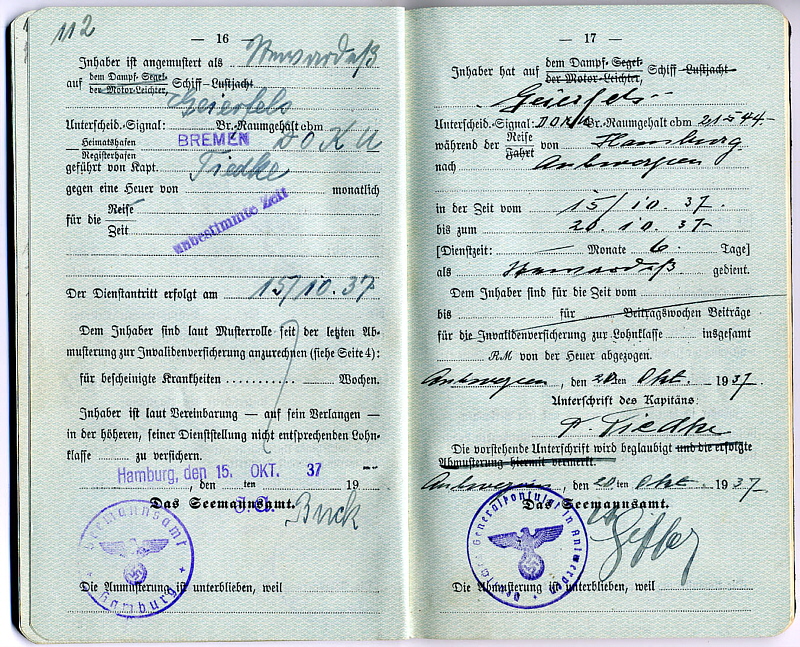 112
— 16 —
Inhaber ist angemustert als Stewardeß
auf dem Dampf- Segel- Schiff Lustjacht
der Motor-Leichter,
Geierfels
Unterscheid.-Signal: Br.-Raumgehalt cbm
Heimatshafen BREMEN DOKU
Registerhafen
geführt von Kapt. Tiedke
gegen eine Heuer von monatlich
für die Reise
Zeit unbestimmte Zeit
Der Dienstantritt erfolgt am 15/10.37
Dem Inhaber sind laut Musterrolle seit der letzten Ab-
musterung zur Invalidenversicherung anzurechnen (siehe Seite 4):
für bescheinigte Krankheiten .......... Wochen.
Inhaber ist laut Vereinbarung — auf sein Verlangen —
in der höheren, seiner Dienststellung nicht entsprechenden Lohn-
klasse zu versichern.
Hamburg, den 15. OKT. 37
, den ten 19
Das Seemannsamt.
J.A. Buck
Seemannsamt
Hamburg
Die Anmusterung ist unterblieben, weil
— 17 —
Inhaber hat auf dem Dampf- Segel- Schiff Lustjacht
der Motor-Leichter,
Geierfels
Unterscheid.-Signal: DOKU Br.-Raumgehalt cbm 21544
während der Reise von Hamburg
Fahrt
nach Antwerpen
in der Zeit vom 15/10.37.
bis zum 20.10.37
[Dienstzeit: Monate 6. Tage]
als Stewardeß gedient.
Dem Inhaber sind für die Zeit vom
bis für Beitragswochen Beiträge
für die Invalidenversicherung zur Lohnklasse insgesamt
RM von der Heuer abgezogen.
Antwerpen, den 20ten Okt. 1937.
Unterschrift des Kapitäns:
Tiedke
Die vorstehende Unterschrift wird beglaubigt und die erfolgte
Abmusterung hiermit vermerkt.
Antwerpen, den 20ten Okt. 1937
Das Seemannsamt.
Generalkonsulat in Antwerpen
Die Abmusterung ist unterblieben, weil